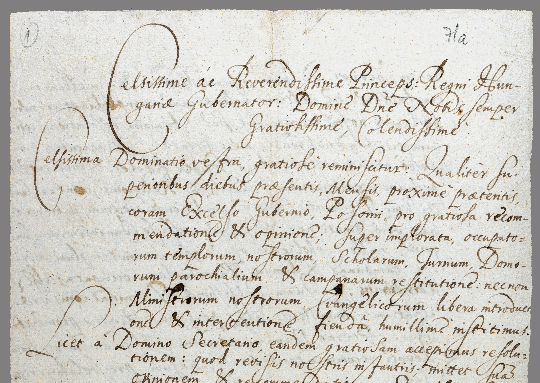 1
71a
Celsissime ac Reverendissime Princeps: Regni Hun-
gariæ Gubernator: Domine Dne Nobis semper
Gratiosissime, Colendissime
Celsissima Dominatio vestra, gratiose reminiscitur: Qualiter su-
perioribus diebus præsentis, Mensis, proxime præteriti
coram Excelso Gubernio, Posonii, pro gratiosa recom-
mendatione & opinione, super implorata, occupato-
rum templorum, nostrorum, Scholarum, Domo-
rum parochialium & campanarum restitutione: necnon
Ministrorum nostrorum Evangelicorum libera introducti-
one & interventione, fienda, humillime institimus.
Licet à Domino Secretario eandem gratiosam accepimus resolu-
tionem: quod revisis nostris instantiis mittet suam
opinionem &